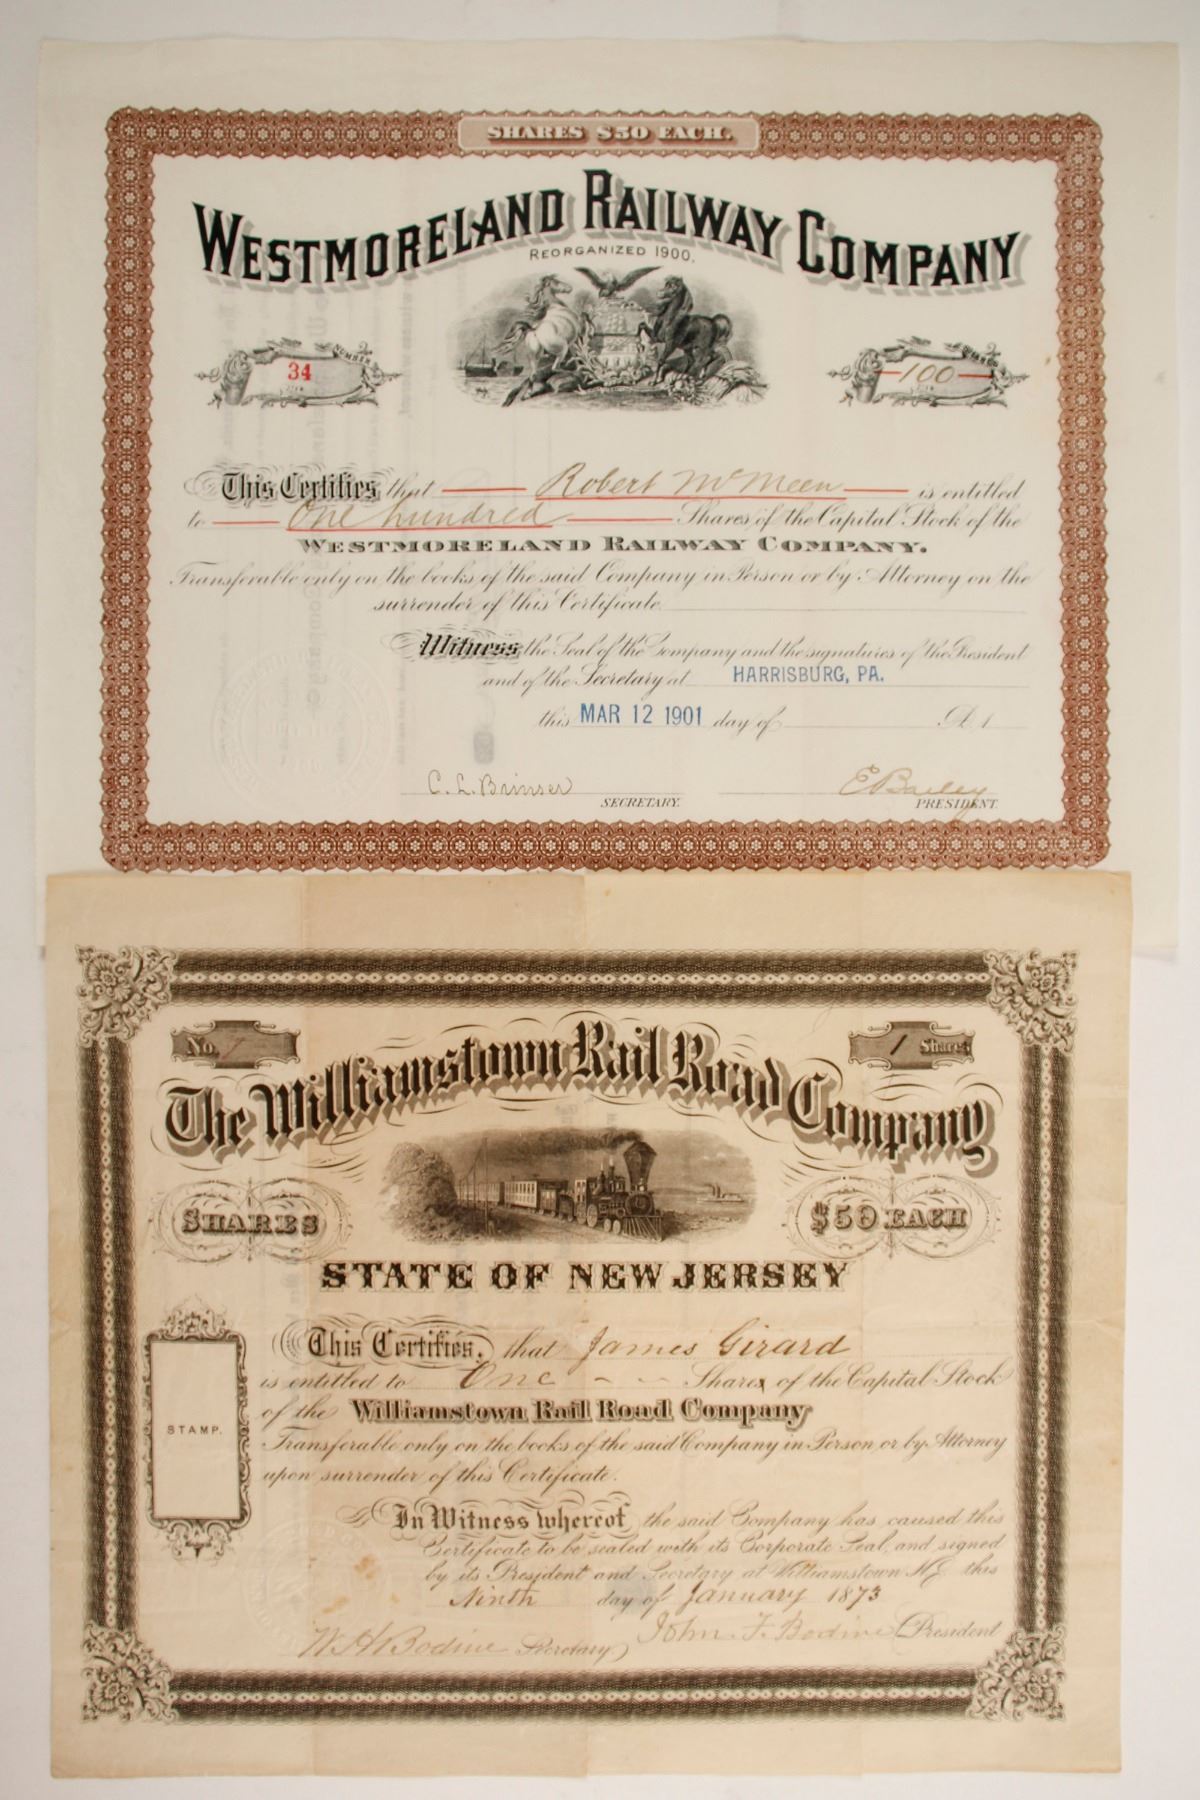 SHARES $50 EACH.
WESTMORELAND RAILWAY COMPANY
REORGANIZED 1900.
NUMBER
34
100
This Certifies that Robert McMeen is entitled
to One hundred Shares of the Capital Stock of the
WESTMORELAND RAILWAY COMPANY.
Transferable only on the books of the said Company in Person or by Attorney on the
surrender of this Certificate.
Witness the Seal of the Company and the signatures of the President
and of the Secretary at HARRISBURG, PA.
this MAR 12 1901 day of A.D. 1
C. L. Brinser SECRETARY.
E Bailey PRESIDENT.
No. 7
1 Shares
The Williamstown Rail Road Company
SHARES $50 EACH
STATE OF NEW JERSEY
This Certifies, that James Girard
is entitled to One Shares of the Capital Stock
of the Williamstown Rail Road Company
Transferable only on the books of the said Company in Person or by Attorney
upon surrender of this Certificate.
STAMP.
In Witness whereof, the said Company has caused this
Certificate to be sealed with its Corporate Seal, and signed
by its President and Secretary at Williamstown N.J. this
Ninth day of January 1873
W. H. Bodine Secretary John F. Bodine President